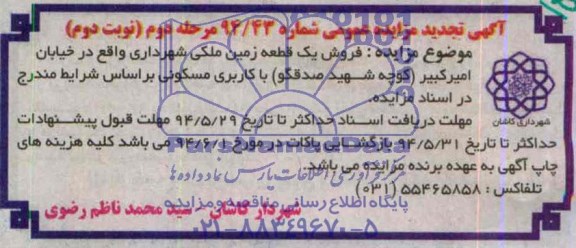 آگهی تجدید مزایده عمومی شماره ۹۴/۴۳ مرحله دوم (نوبت دوم)
موضوع مزایده : فروش یک قطعه زمین ملکی شهرداری واقع در خیابان
امیرکبیر (کوچه شهید صدقگو) با کاربری مسکونی براساس شرایط مندرج
در اسناد مزایده.
شهرداری کاشان
مهلت دریافت اسناد حداکثر تا تاریخ ۹۴/۵/۲۹ مهلت قبول پیشنهادات
حداکثر تا تاریخ ۹۴/۵/۳۱ بازگشایی پاکات در مورخ ۹۴/۶/۱ می باشد کلیه هزینه های
چاپ آگهی به عهده برنده مزایده می باشد.
مرکز فرآوری اطلاعات پارس نماد داده ها
تلفاکس : ۵۵۴۶۵۸۵۸ (۰۳۱)
پایگاه اطلاع رسانی مناقصه و مزایده
شهردار کاشان - سید محمد ناظم رضوی
۰۲۱-۸۸۳۴۹۶۷۰-۵